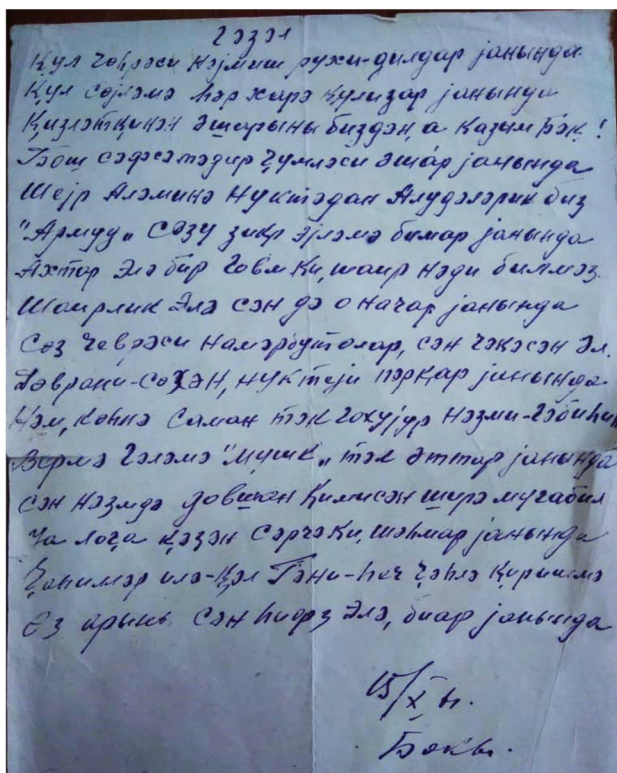 Гәзәл
Ҝүл чөврәси нәјмиш рухи-дилдар јанында
Ҝүл сөјләмә һәр харә ҝүлизар јанында
Ҝизләтҝинән әшарыны биздән, а Казым Бәҝ!
Бош сәфсәтәдир ҹүмләси әшар јанында
Шејр Аләминә Нуктәдан Алудәләрик биз
"Армуд" сөзү зикр әјләмә бимар јанында
Ахтар элә бир говм ки, шаир нәди билмәз
Шаирлик элә сән дә о начар јанында
Сөз чеврәси намәрбут олар, сән чәкәсән әл.
Дәврани-сөхән, нуктеји пәркар јанында
Нәм, көһнә саман тәк гохујур нәзми-гәбиһин
Вермә гәләмә "мүшк" тәк әттар јанында
Сән нәзмдә довшан кимисән ширә мугабил
Ја лоға ҝәзән сәрчә ки, шаһмар јанында
Ҹанимәр илә-ҝәл Гәни-һеч ҹәһлә ҝиришмә
Өз арынь сән һифз элә, биар јанында
15/X ы.
Бакы.